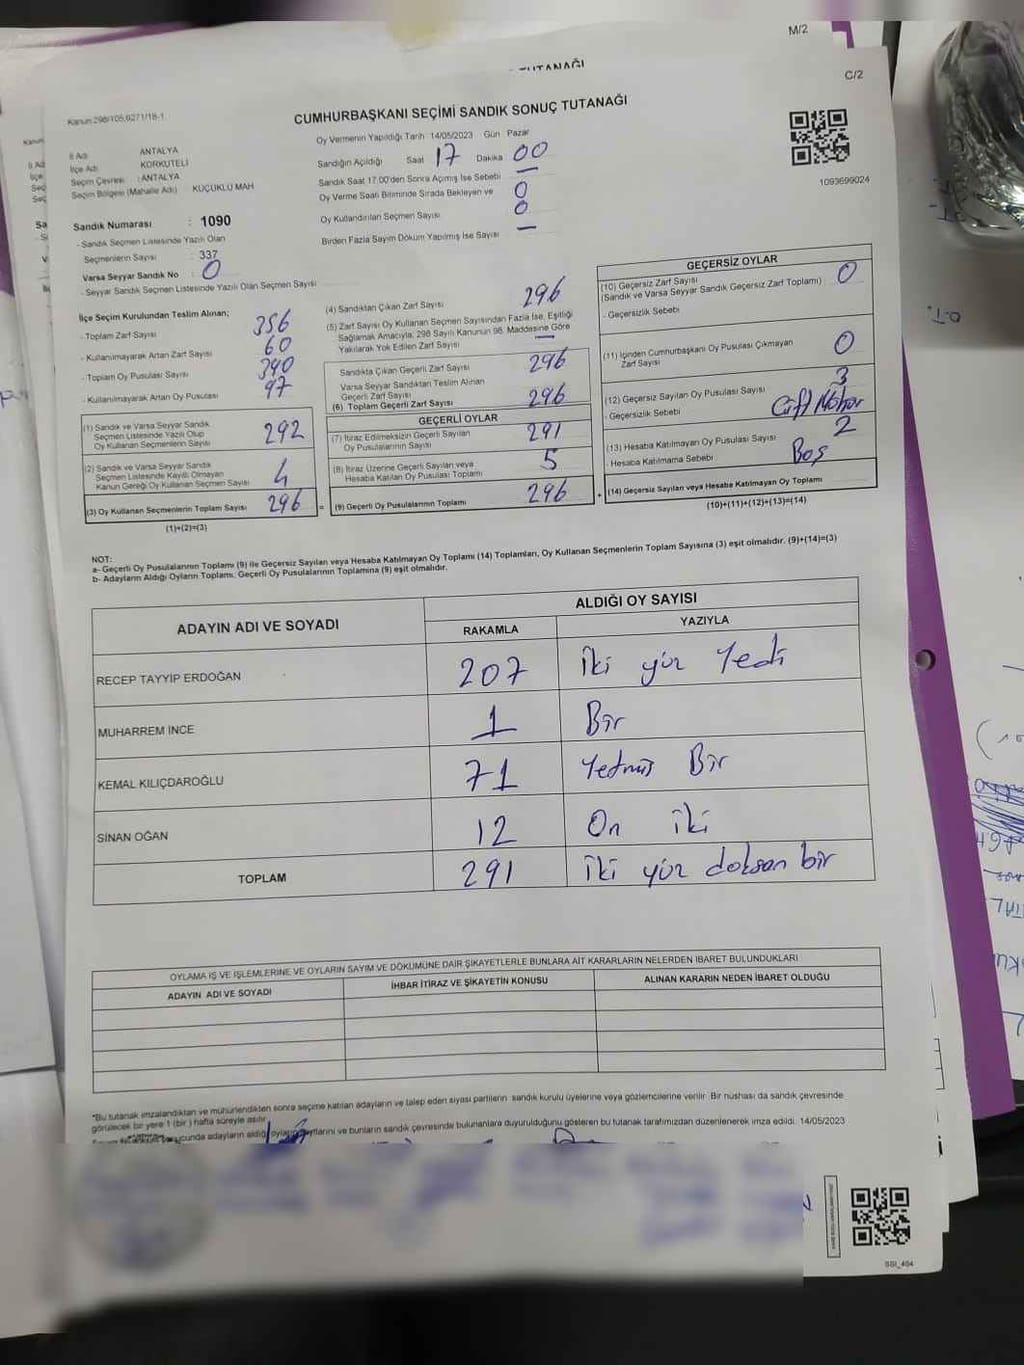 M/2
TUTANAĞI
C/2
Kanun 298/105,6271/18-1
CUMHURBAŞKANI SEÇİMİ SANDIK SONUÇ TUTANAĞI
İl Adı : ANTALYA
İlçe Adı : KORKUTELİ
Seçim Çevresi : ANTALYA
Seçim Bölgesi (Mahalle Adı) : KÜÇÜKLÜ MAH
Sandık Numarası : 1090
- Sandık Seçmen Listesinde Yazılı Olan
Seçmenlerin Sayısı : 337
Varsa Seyyar Sandık No : 0
- Seyyar Sandık Seçmen Listesinde Yazılı Olan Seçmen Sayısı
Oy Vermenin Yapıldığı Tarih 14/05/2023 Gün Pazar
Sandığın Açıldığı Saat 17 Dakika 00
Sandık Saat 17.00'den Sonra Açımış İse Sebebi —
Oy Verme Saati Bitiminde Sırada Bekleyen ve 0
Oy Kullandırılan Seçmen Sayısı 0
Birden Fazla Sayım Döküm Yapılmış İse Sayısı —
1093699024
İlçe Seçim Kurulundan Teslim Alınan;
- Toplam Zarf Sayısı 356
- Kullanılmayarak Artan Zarf Sayısı 60
- Toplam Oy Pusulası Sayısı 390
- Kullanılmayarak Artan Oy Pusulası 97
(1) Sandık ve Varsa Seyyar Sandık
Seçmen Listesinde Yazılı Olup
Oy Kullanan Seçmenlerin Sayısı 292
(2) Sandık ve Varsa Seyyar Sandık
Seçmen Listesinde Kayıtlı Olmayan
Kanun Gereği Oy Kullanan Seçmen Sayısı 4
(3) Oy Kullanan Seçmenlerin Toplam Sayısı 296
(1)+(2)=(3)
(4) Sandıktan Çıkan Zarf Sayısı 296
(5) Zarf Sayısı Oy Kullanan Seçmen Sayısından Fazla İse, Eşitliği
Sağlamak Amacıyla, 298 Sayılı Kanunun 98. Maddesine Göre
Yakılarak Yok Edilen Zarf Sayısı —
Sandıkta Çıkan Geçerli Zarf Sayısı 296
Varsa Seyyar Sandıktan Teslim Alınan
Geçerli Zarf Sayısı
(6) Toplam Geçerli Zarf Sayısı 296
GEÇERLİ OYLAR
(7) İtiraz Edilmeksizin Geçerli Sayılan
Oy Pusulalarının Sayısı 291
(8) İtiraz Üzerine Geçerli Sayılan veya
Hesaba Katılan Oy Pusulası Toplamı 5
= (9) Geçerli Oy Pusulalarının Toplamı 296 +
GEÇERSİZ OYLAR
(10) Geçersiz Zarf Sayısı 0
(Sandık ve Varsa Seyyar Sandık Geçersiz Zarf Toplamı)
- Geçersizlik Sebebi
(11) İçinden Cumhurbaşkanı Oy Pusulası Çıkmayan
Zarf Sayısı 0
(12) Geçersiz Sayılan Oy Pusulası Sayısı 3
- Geçersizlik Sebebi Çift Mühür
(13) Hesaba Katılmayan Oy Pusulası Sayısı 2
- Hesaba Katılmama Sebebi Boş
(14) Geçersiz Sayılan veya Hesaba Katılmayan Oy Toplamı
(10)+(11)+(12)+(13)=(14)
NOT:
a- Geçerli Oy Pusulalarının Toplamı (9) ile Geçersiz Sayılan veya Hesaba Katılmayan Oy Toplamı (14) Toplamları, Oy Kullanan Seçmenlerin Toplam Sayısına (3) eşit olmalıdır. (9)+(14)=(3)
b- Adayların Aldığı Oyların Toplamı, Geçerli Oy Pusulalarının Toplamına (9) eşit olmalıdır.
ADAYIN ADI VE SOYADI
ALDIĞI OY SAYISI
RAKAMLA YAZIYLA
RECEP TAYYİP ERDOĞAN 207 İki yüz Yedi
MUHARREM İNCE 1 Bir
KEMAL KILIÇDAROĞLU 71 Yetmiş Bir
SİNAN OĞAN 12 On iki
TOPLAM 291 İki yüz doksan bir
OYLAMA İŞ VE İŞLEMLERİNE VE OYLARIN SAYIM VE DÖKÜMÜNE DAİR ŞİKAYETLERLE BUNLARA AİT KARARLARIN NELERDEN İBARET BULUNDUKLARI
ADAYIN ADI VE SOYADI İHBAR İTİRAZ VE ŞİKAYETİN KONUSU ALINAN KARARIN NEDEN İBARET OLDUĞU
*Bu tutanak imzalandıktan ve mühürlendikten sonra seçime katılan adayların ve talep eden siyasi partilerin sandık kurulu üyelerine veya gözlemcilerine verilir. Bir nüshası da sandık çevresinde
görülecek bir yere 1 (bir) hafta süreyle asılır.
adayların aldığı oyların sayılarını ve bunların sandık çevresinde bulunanlara duyurulduğunu gösteren bu tutanak tarafımızdan düzenlenerek imza edildi. 14/05/2023
SSI_404